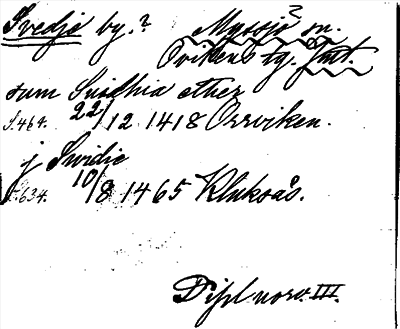 Svedje by.? Myssjö? sn.
Ovikens tg. Jmt.
sum Suidhia ether
S. 464. 22/12 1418 Orrviken.
j Swidie
S. 634. 10/8 1465 Kluksås.
Dipl norv. III.